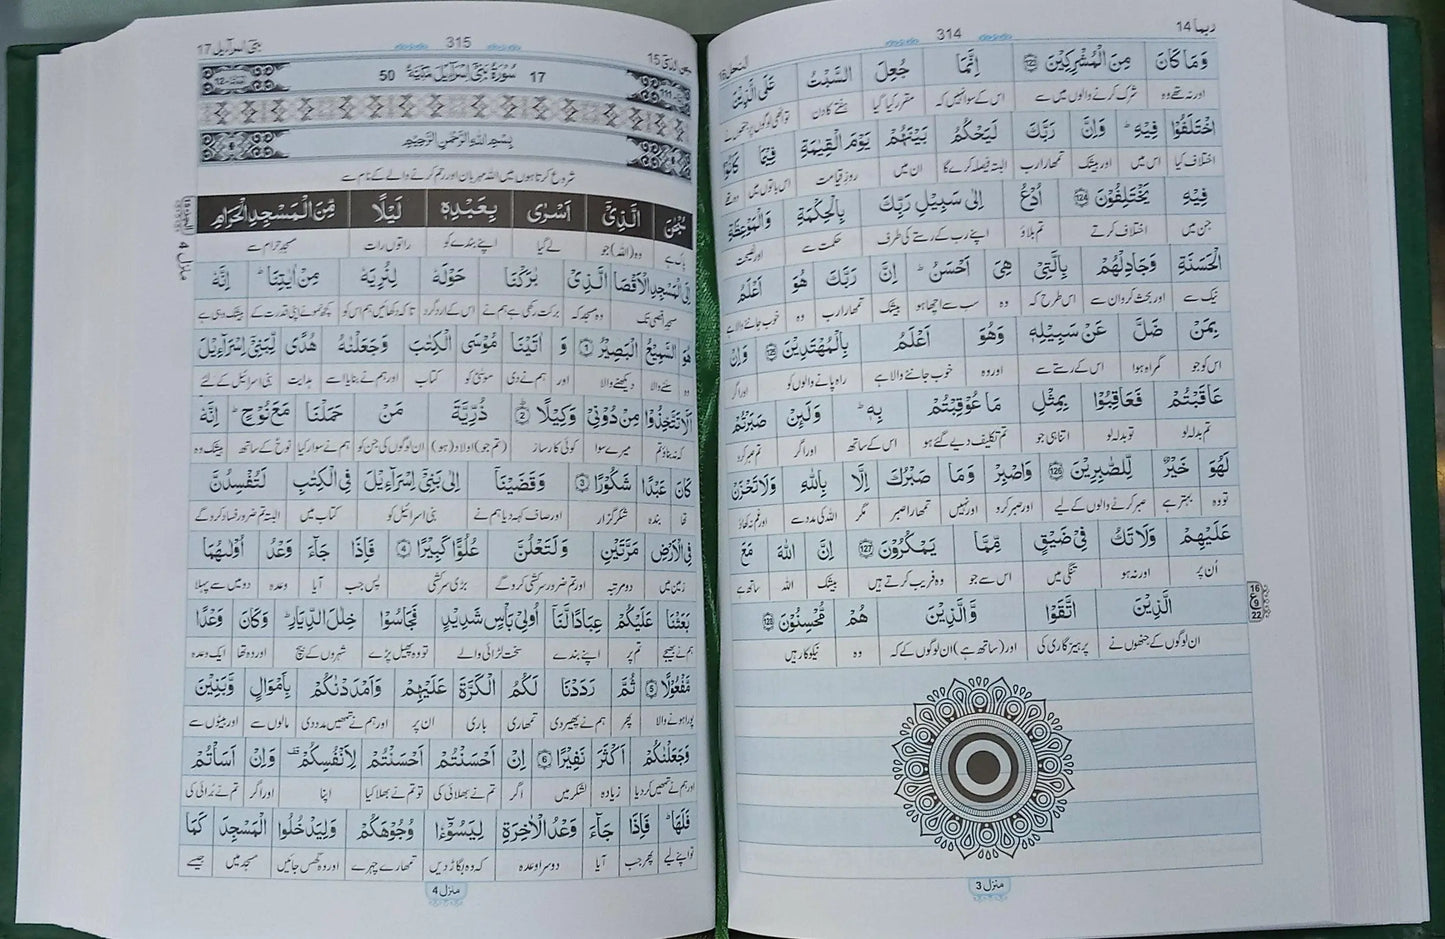 ربما 14
314
النحل 16
وَمَا كَانَ مِنَ الْمُشْرِكِيْنَ ۝123 اِنَّمَا جُعِلَ السَّبْتُ عَلَى الَّذِيْنَ
اور نہ تھے وہ شرک کرنے والوں میں سے اس کے سوا نہیں کہ مقرر کیا گیا ہفتے کا دن
اخْتَلَفُوْا فِيْهِ ؕ وَاِنَّ رَبَّكَ لَيَحْكُمُ بَيْنَهُمْ يَوْمَ الْقِيٰمَةِ فِيْمَا كَانُوْا
اختلاف کیا اس میں اور بیشک تمھارا رب البتہ فیصلہ کرے گا ان میں روز قیامت اس بات میں وہ تھے
فِيْهِ يَخْتَلِفُوْنَ ۝124 اُدْعُ اِلٰى سَبِيْلِ رَبِّكَ بِالْحِكْمَةِ وَالْمَوْعِظَةِ
جن میں اختلاف کرتے تم بلاؤ اپنے رب کے رستے کی طرف حکمت سے اور نصیحت
الْحَسَنَةِ وَجَادِلْهُمْ بِالَّتِيْ هِيَ اَحْسَنُ ؕ اِنَّ رَبَّكَ هُوَ اَعْلَمُ
نیک سے اور بحث کرو ان سے اس طرح کہ وہ سب سے اچھا ہو بیشک تمھارا رب وہ خوب جاننے والا ہے
بِمَنْ ضَلَّ عَنْ سَبِيْلِهٖ وَهُوَ اَعْلَمُ بِالْمُهْتَدِيْنَ ۝125 وَاِنْ
اس کو جو گمراہ ہوا اس کے رستے سے اور وہ خوب جاننے والا ہے راہ پانے والوں کو اور اگر
عَاقَبْتُمْ فَعَاقِبُوْا بِمِثْلِ مَا عُوْقِبْتُمْ بِهٖ ؕ وَلَئِنْ صَبَرْتُمْ
تم بدلہ لو تو بدلہ لو اتنا ہی جو تم تکلیف دیے گئے ہو اس کے ساتھ اور اگر تم صبر کرو
لَهُوَ خَيْرٌ لِّلصّٰبِرِيْنَ ۝126 وَاصْبِرْ وَمَا صَبْرُكَ اِلَّا بِاللّٰهِ وَلَا تَحْزَنْ
تو وہ بہتر ہے صبر کرنے والوں کے لیے اور صبر کرو اور نہیں تمھارا صبر مگر اللہ کی مدد سے اور غم نہ کھاؤ
عَلَيْهِمْ وَلَا تَكُ فِيْ ضَيْقٍ مِّمَّا يَمْكُرُوْنَ ۝127 اِنَّ اللّٰهَ مَعَ
اُن پر اور نہ ہو تنگی میں اس سے جو وہ فریب کرتے ہیں بیشک اللہ ساتھ ہے
الَّذِيْنَ اتَّقَوْا وَّالَّذِيْنَ هُمْ مُّحْسِنُوْنَ ۝128
ان لوگوں کے جنھوں نے پرہیز گاری کی اور (ساتھ ہے) ان لوگوں کے کہ وہ نیکوکار ہیں
16
ع
9
22
منزل 3
315
بنی اسرآءیل 17
17 سُوْرَةُ بَنِيْٓ اِسْرَآءِيْلَ مَكِّيَّةٌ 50
بِسْمِ اللّٰهِ الرَّحْمٰنِ الرَّحِيْمِ
شروع کرتا ہوں میں اللہ مہربان اور رحم کرنے والے کے نام سے
سُبْحٰنَ الَّذِيْٓ اَسْرٰى بِعَبْدِهٖ لَيْلًا مِّنَ الْمَسْجِدِ الْحَرَامِ
پاک ہے وہ (اللہ) جو لے گیا اپنے بندے کو راتوں رات مسجد حرام سے
اِلَى الْمَسْجِدِ الْاَقْصَا الَّذِيْ بٰرَكْنَا حَوْلَهٗ لِنُرِيَهٗ مِنْ اٰيٰتِنَا ؕ اِنَّهٗ
مسجد اقصیٰ تک وہ مسجد کہ برکت رکھی ہے ہم نے اس کے ارد گرد تا کہ دکھائیں ہم اس کو کچھ نمونے اپنی قدرت کے بیشک وہی ہے
هُوَ السَّمِيْعُ الْبَصِيْرُ ۝1 وَ اٰتَيْنَا مُوْسَى الْكِتٰبَ وَجَعَلْنٰهُ هُدًى لِّبَنِيْٓ اِسْرَآءِيْلَ
وہ سننے والا دیکھنے والا اور ہم نے دی موسیٰ کو کتاب اور ہم نے بنایا اسے ہدایت بنی اسرائیل کے لئے
اَلَّا تَتَّخِذُوْا مِنْ دُوْنِيْ وَكِيْلًا ۝2 ذُرِّيَّةَ مَنْ حَمَلْنَا مَعَ نُوْحٍ ؕ اِنَّهٗ
کہ نہ بناؤ تم میرے سوا کوئی کارساز (تم جو) اولاد (ہو) ان لوگوں کی جن کو ہم نے سوار کیا نوح کے ساتھ بیشک وہ
كَانَ عَبْدًا شَكُوْرًا ۝3 وَقَضَيْنَآ اِلٰى بَنِيْٓ اِسْرَآءِيْلَ فِي الْكِتٰبِ لَتُفْسِدُنَّ
تھا بندہ شکر گزار اور صاف کہہ دیا ہم نے بنی اسرائیل کو کتاب میں البتہ تم ضرور فساد کرو گے
فِي الْاَرْضِ مَرَّتَيْنِ وَلَتَعْلُنَّ عُلُوًّا كَبِيْرًا ۝4 فَاِذَا جَآءَ وَعْدُ اُوْلٰىهُمَا
زمین میں دو مرتبہ اور تم ضرور سرکشی کرو گے بڑی سرکشی پس جب آیا وعدہ دو میں سے پہلا
بَعَثْنَا عَلَيْكُمْ عِبَادًا لَّنَآ اُولِيْ بَاْسٍ شَدِيْدٍ فَجَاسُوْا خِلٰلَ الدِّيَارِ ؕ وَكَانَ وَعْدًا
ہم نے بھیجے تم پر اپنے بندے سخت لڑائی والے تو وہ پھیل پڑے شہروں کے بیچ اور وہ تھا ایک وعدہ
مَّفْعُوْلًا ۝5 ثُمَّ رَدَدْنَا لَكُمُ الْكَرَّةَ عَلَيْهِمْ وَاَمْدَدْنٰكُمْ بِاَمْوَالٍ وَّبَنِيْنَ
پورا ہونے والا پھر ہم نے پھیر دی تمھاری باری ان پر اور ہم نے تمھیں مدد دی مالوں سے اور بیٹوں سے
وَجَعَلْنٰكُمْ اَكْثَرَ نَفِيْرًا ۝6 اِنْ اَحْسَنْتُمْ اَحْسَنْتُمْ لِاَنْفُسِكُمْ وَاِنْ اَسَاْتُمْ
اور ہم نے تمھیں کر دیا زیادہ لشکر میں اگر تم نے بھلائی کی تو تم نے بھلا کیا اپنا اور اگر تم نے بُرائی کی
فَلَهَا ؕ فَاِذَا جَآءَ وَعْدُ الْاٰخِرَةِ لِيَسُوْٓءٗا وُجُوْهَكُمْ وَلِيَدْخُلُوا الْمَسْجِدَ كَمَا
تو اپنے لیے پھر جب آیا دوسرا وعدہ کہ وہ بگاڑ دیں تمھارے چہرے اور وہ گھس جائیں مسجد میں جیسے
منزل 4
منزل 4